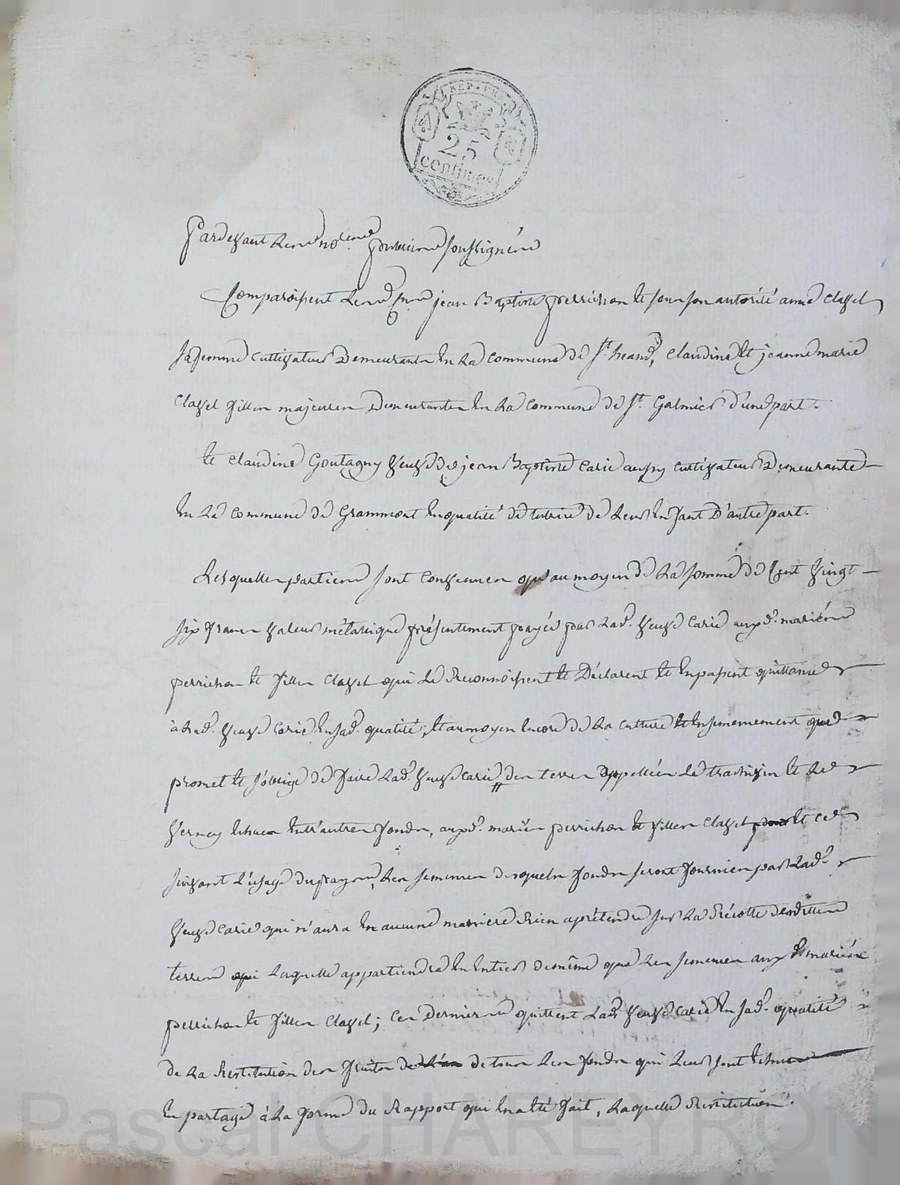 REP. FRA.
25
centimes
Pardevant Les no.res soussignés
Comparoissent Les c.ns jean Baptiste perrichon et sous son autorité anne clavel
sa femme cultivateurs Demeurants En La commune de S.t heand, claudine et jeanne marie
clavel filles majeures Demeurantes En La commune de S.t Galmier d'une part.
Et claudine Goutagny veuve de jean Baptiste carie aussy cultivateur Demeurante
En La commune de Grammont En qualité de tutrice de Leurs Enfant D'autre part.
Lesquelles parties sont convenues qu'au moyen de La somme de Cent vingt
six francs valeur métalique présentement payée par Lad. veuve carie auxd. mariés
perrichon et filles clavel qui Le Reconnoissent et Déclarent et En passent quittance
à Lad. veuve carie En sad. qualité, et au moyen Encore de La culture et Ensemencement que
promet et s'oblige de faire Lad. veuve carie des terres appellées Le et Le
verney Echues Entr'autres fonds, auxd. mariés perrichon et filles clavel et ce
suivant L'usage du payis, Les semences desquels fonds seront fournies par Lad.
veuve carie qui n'aura En aucune manière Rien a prétendre sur La Récolte desdittes
terres Laquelle appartiendra En Entier de même que Les semences aux d. mariés
perrichon et filles clavel; Ces Derniers quittent Lad. veuve carie En sad. qualité
de La Restitution des fruits de tous Les fonds qui Leurs sont Echus
En partage à La forme du Rapport qui En a été fait, Laquelle Restitution
Pascal CHAREYRON